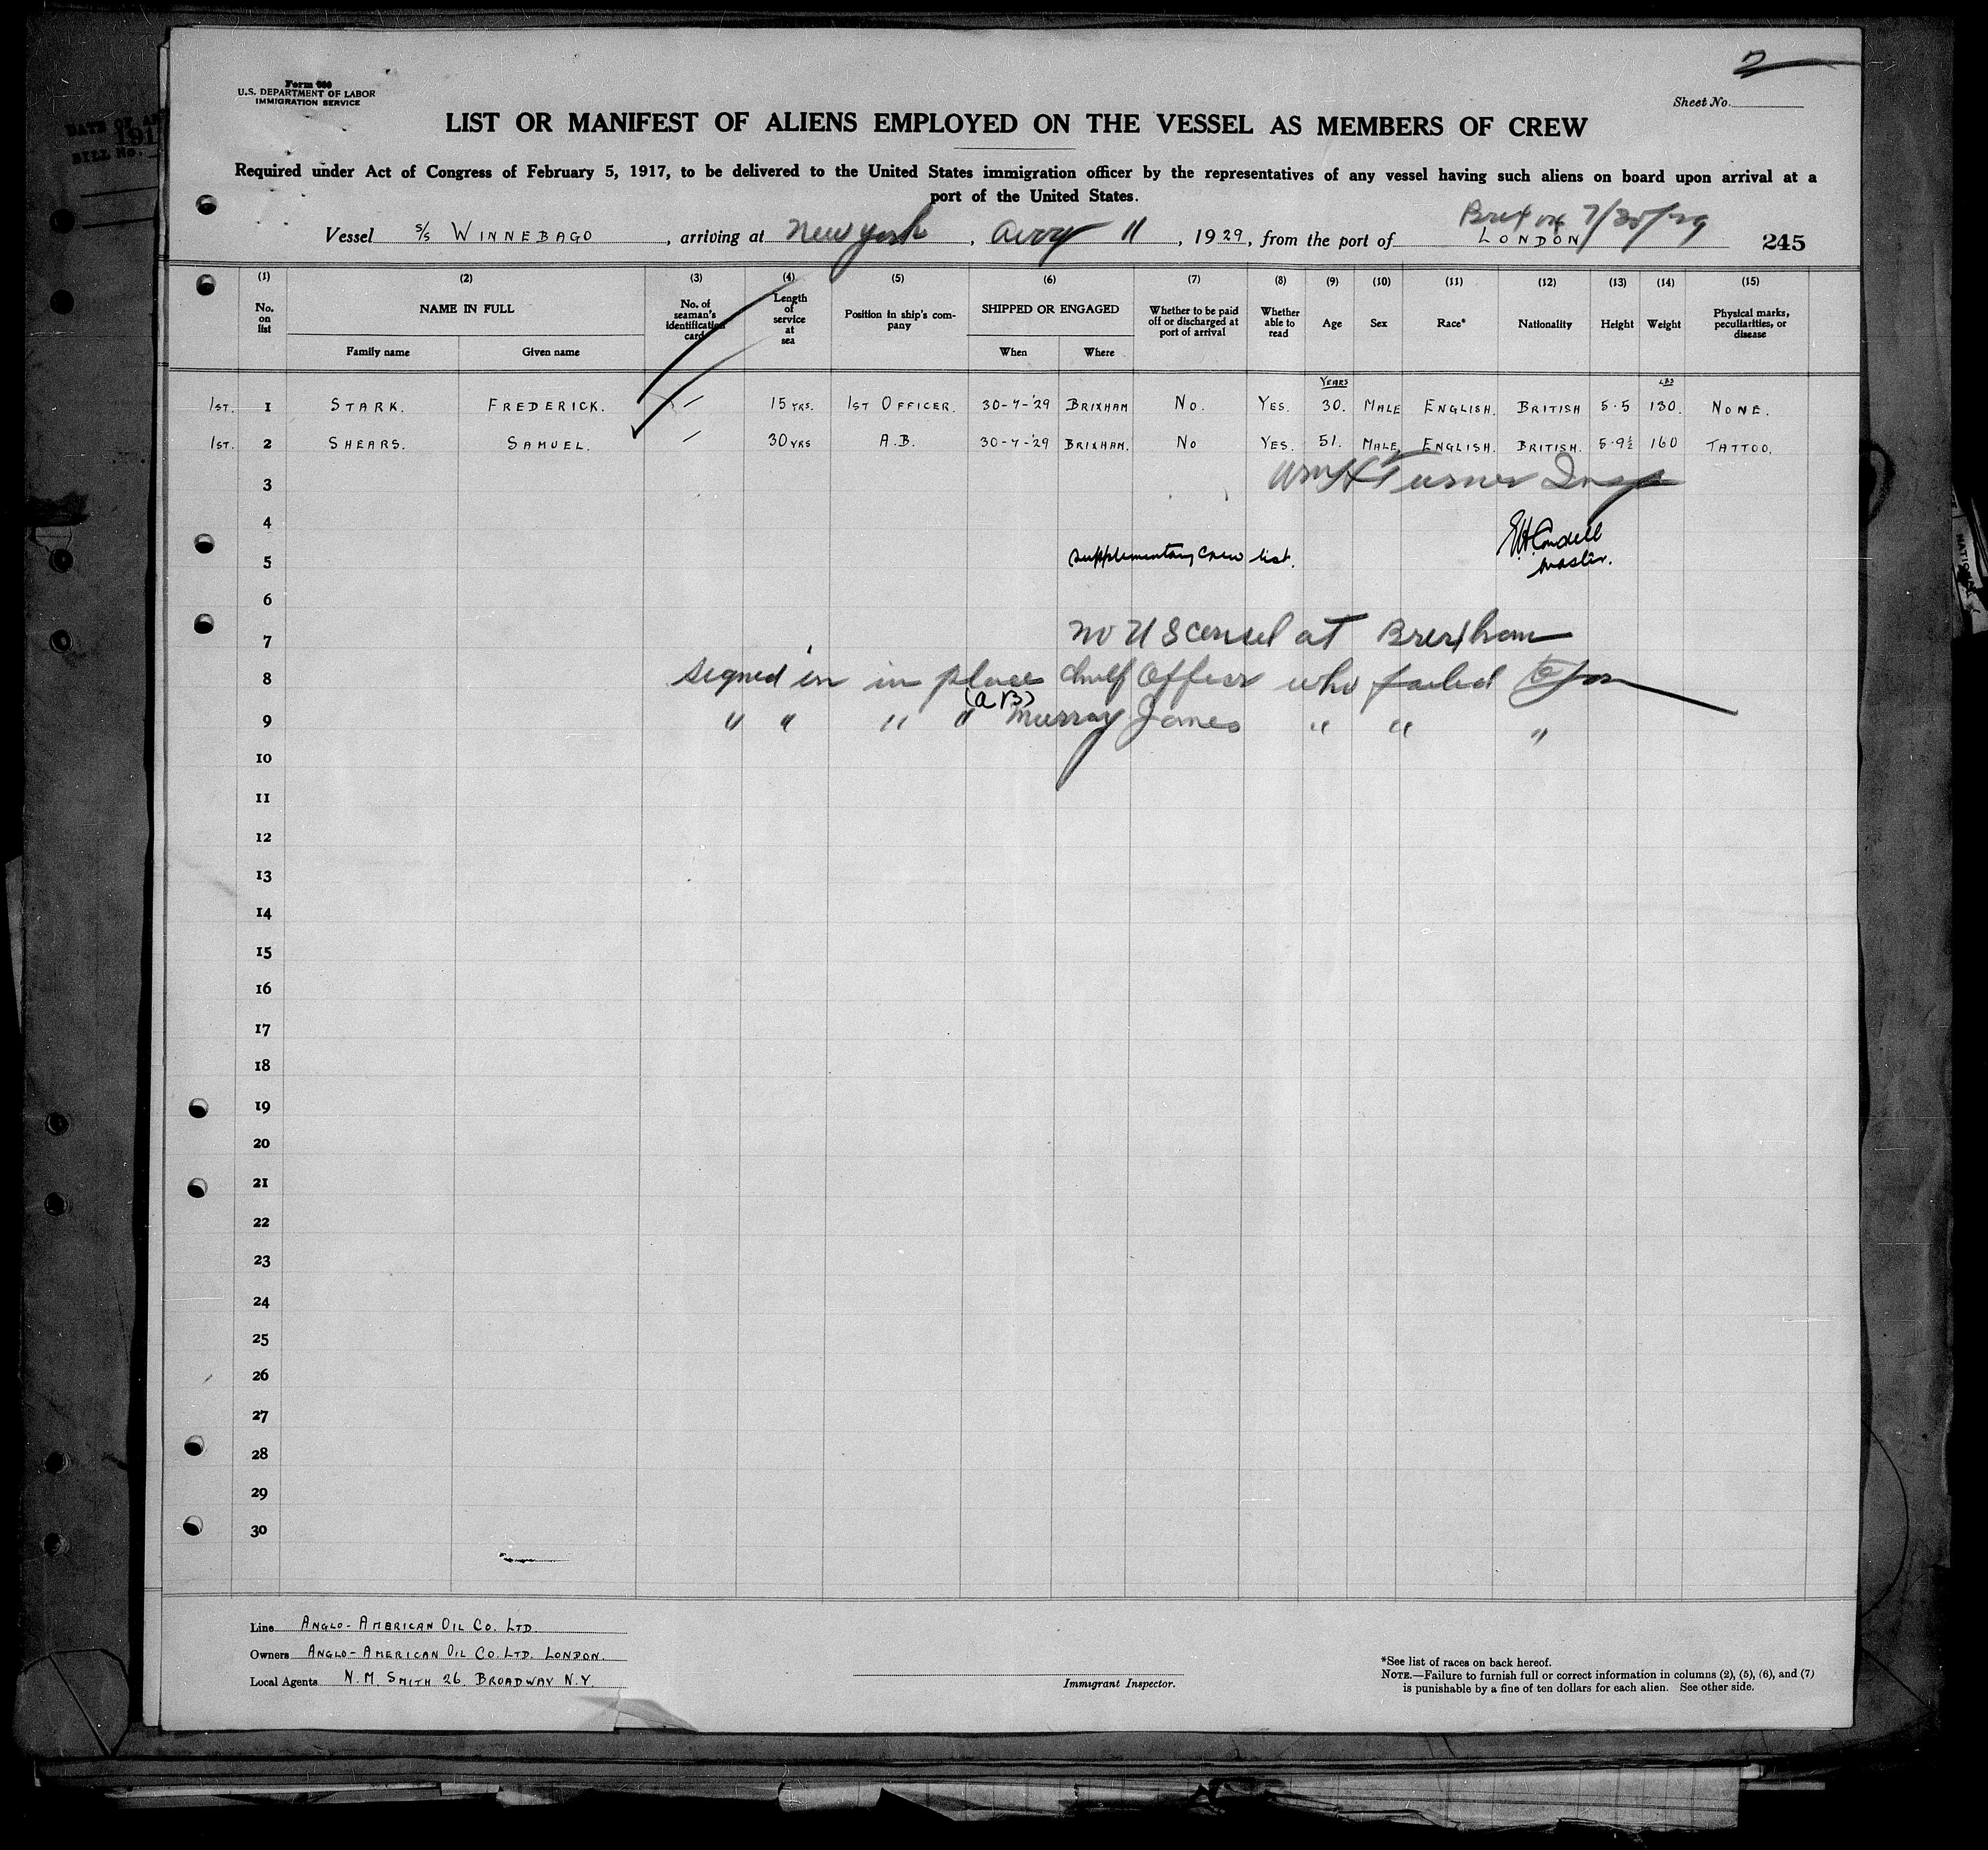 2
Form 680
U.S. DEPARTMENT OF LABOR
IMMIGRATION SERVICE
Sheet No.
LIST OR MANIFEST OF ALIENS EMPLOYED ON THE VESSEL AS MEMBERS OF CREW
Required under Act of Congress of February 5, 1917, to be delivered to the United States immigration officer by the representatives of any vessel having such aliens on board upon arrival at a
port of the United States.
7/30/29
Vessel S/S WINNEBAGO, arriving at New york, Aug 11, 1929, from the port of LONDON 245
(1) (2) (3) (4) (5) (6) (7) (8) (9) (10) (11) (12) (13) (14) (15)
No. on list NAME IN FULL Family name Given name No. of seaman's identification card Length of service at sea Position in ship's company SHIPPED OR ENGAGED When Where Whether to be paid off or discharged at port of arrival Whether able to read Age Sex Race* Nationality Height Weight Physical marks, peculiarities, or disease
YEARS LBS
1ST. 1 STARK. FREDERICK. / 15 YRS. 1ST OFFICER. 30-7-'29 BRIXHAM NO. YES. 30. MALE ENGLISH. BRITISH 5·5 130. NONE.
1ST. 2 SHEARS. SAMUEL. / 30 YRS A.B. 30-7-'29 BRIXHAM. NO YES. 51. MALE ENGLISH. BRITISH. 5·9½ 160 TATTOO.
3 Wm H Turner Insp
4
5 Supplementary Crew list. Condell
master.
6
7 no US consul at Brixham
8 signed in in place chief Officer who failed to join
(AB)
9 " " " " Murray James " " "
10
11
12
13
14
15
16
17
18
19
20
21
22
23
24
25
26
27
28
29
30
Line ANGLO-AMERICAN OIL CO. LTD.
Owners ANGLO-AMERICAN OIL CO. LTD. LONDON.
Local Agents N.M. SMITH 26. BROADWAY N.Y.
Immigrant Inspector.
*See list of races on back hereof.
NOTE.—Failure to furnish full or correct information in columns (2), (5), (6), and (7)
is punishable by a fine of ten dollars for each alien. See other side.